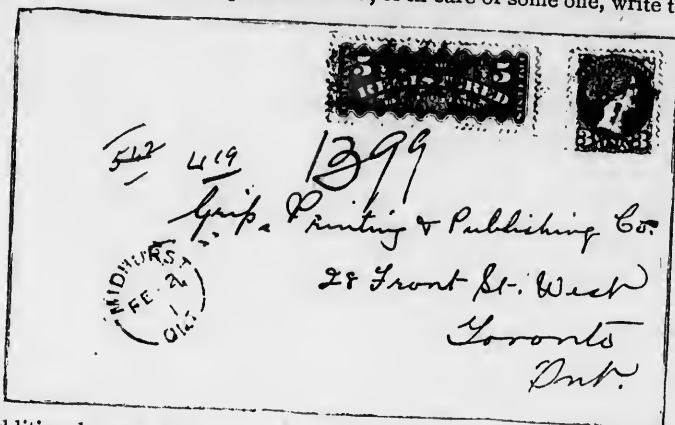 or in care of some one, write t
5 5
REGISTERED
3 3
542 419 1399
Grip. Printing & Publishing Co.
28 Front St. West
Toronto
Ont.
MIDHURST
FE 2
1
ONT